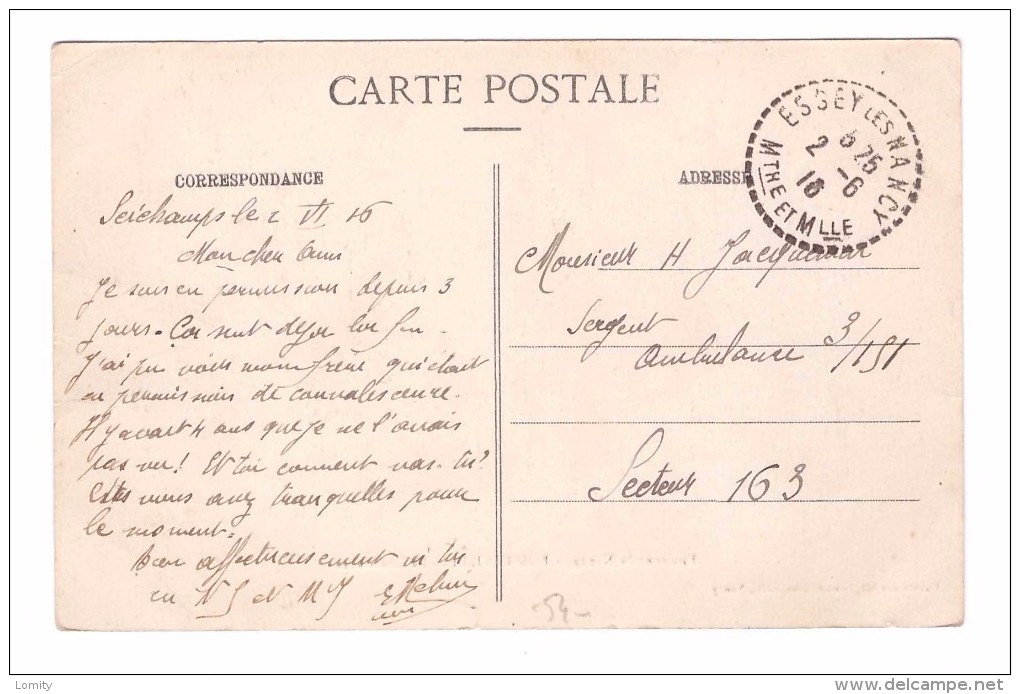 CARTE POSTALE
ESSEY LES NANCY
5 25
2 - 6
16
MTHE ET MLLE
CORRESPONDANCE
ADRESSE
Seichamps le 2 VI 16
Mon cher ami
Je suis en permission depuis 3
jours.
J'ai pu voir mon frère qui était
en permission de convalescence.
Il y avait 4 ans que je ne l'avais
pas vu! Et toi comment vas-tu?
Etes vous assez tranquilles pour
le moment.
Bien affectueusement à toi
en N S et M J
Monsieur H Jacquemar
Sergent
Ambulance 3/151
Secteur 163
54-
Lomity
delcampe.net